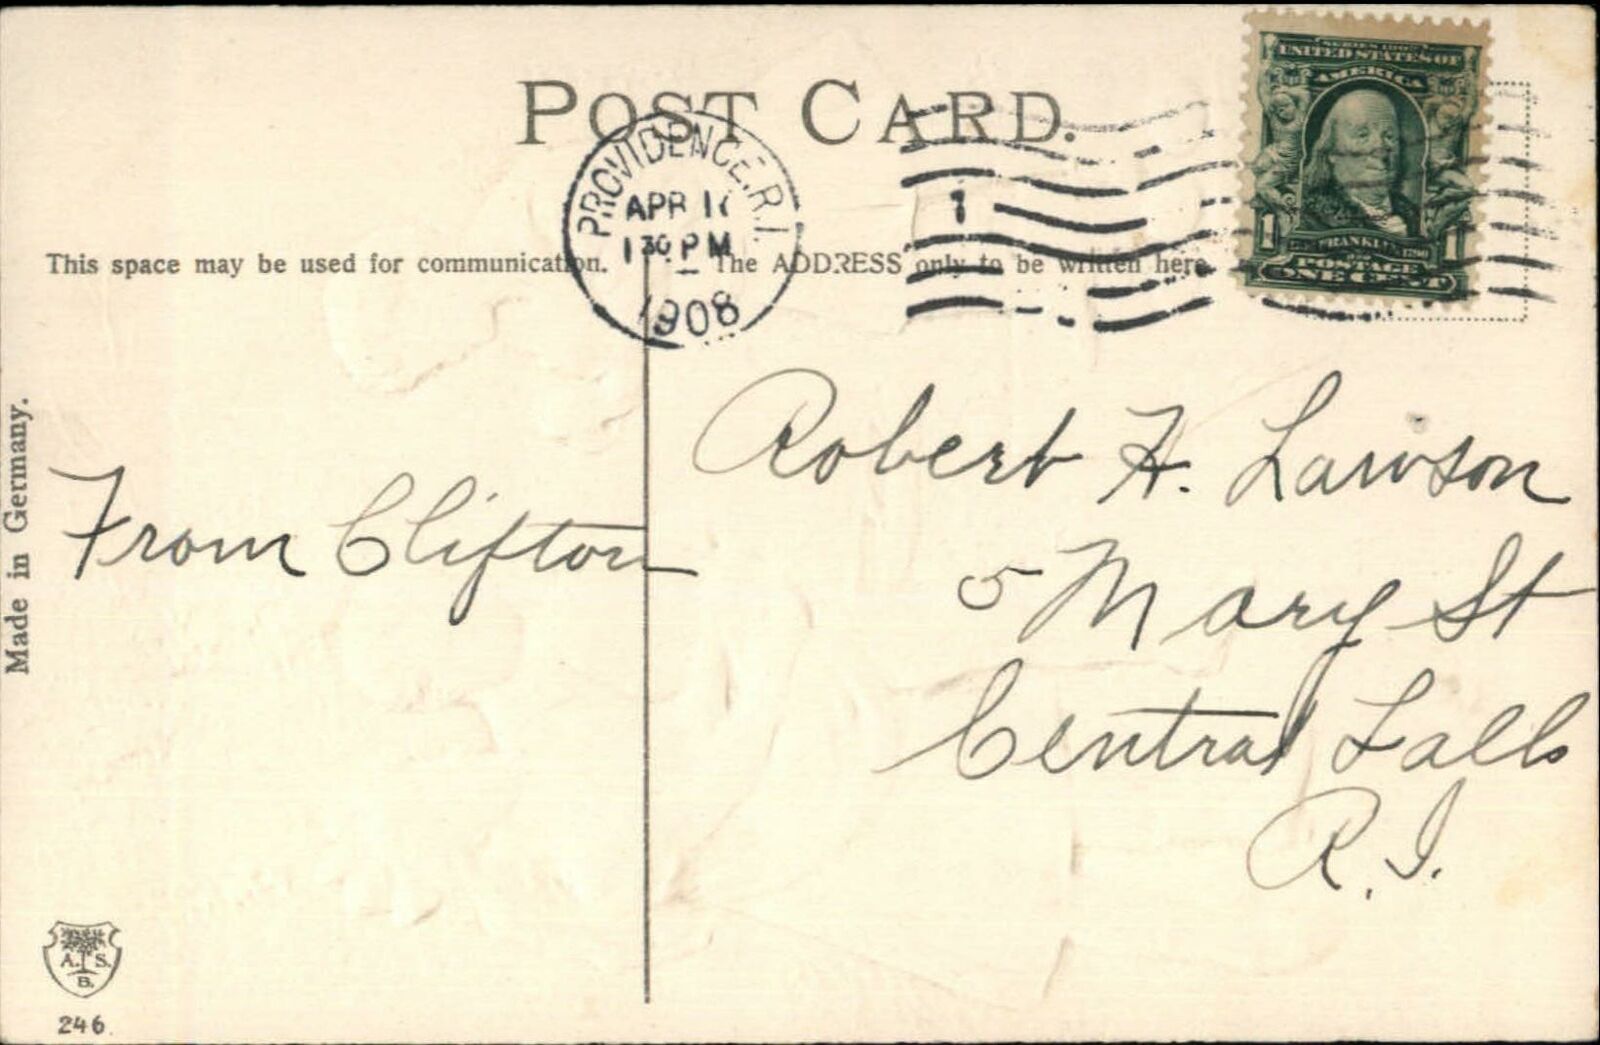 POST CARD.
PROVIDENCE, R.I.
APR 17
1 30 PM
1908
1
SERIES 1902
UNITED STATES OF
AMERICA
FRANKLIN
1790
POSTAGE
1 1
ONE CENT
This space may be used for communication.
The ADDRESS only to be written here.
From Clifton
Robert H. Lawson
5 Mary St
Central Falls
R.I.
Made in Germany.
A. S.
B.
246.